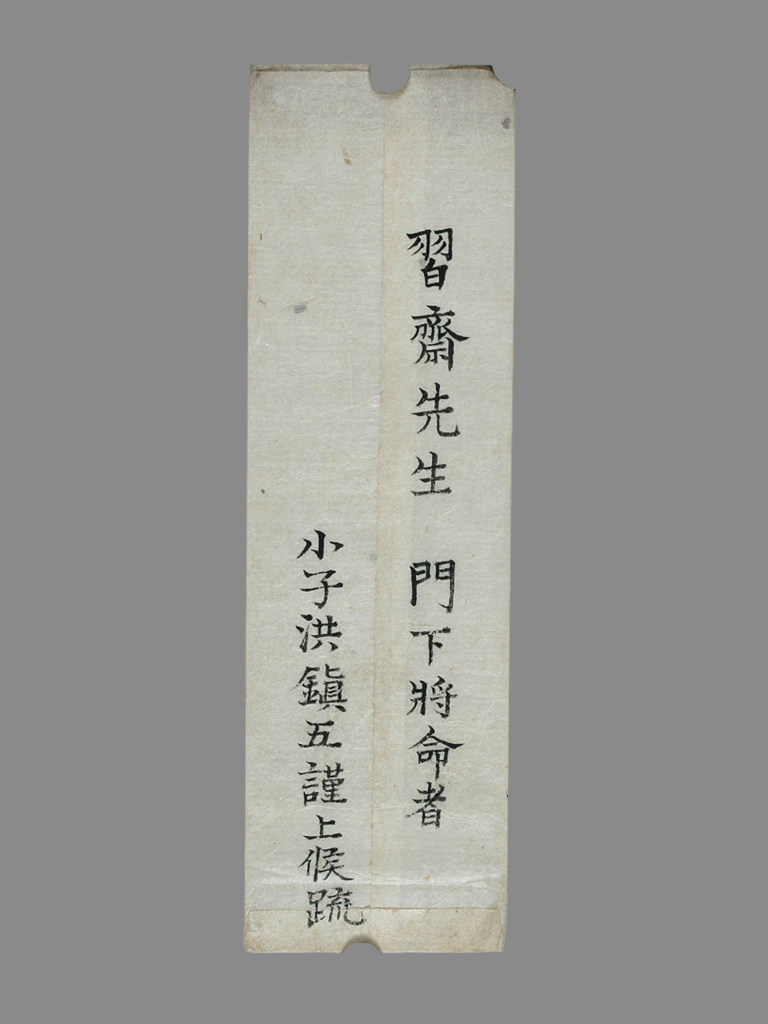 習齋先生 門下將命者
小子洪鎭五謹上候疏